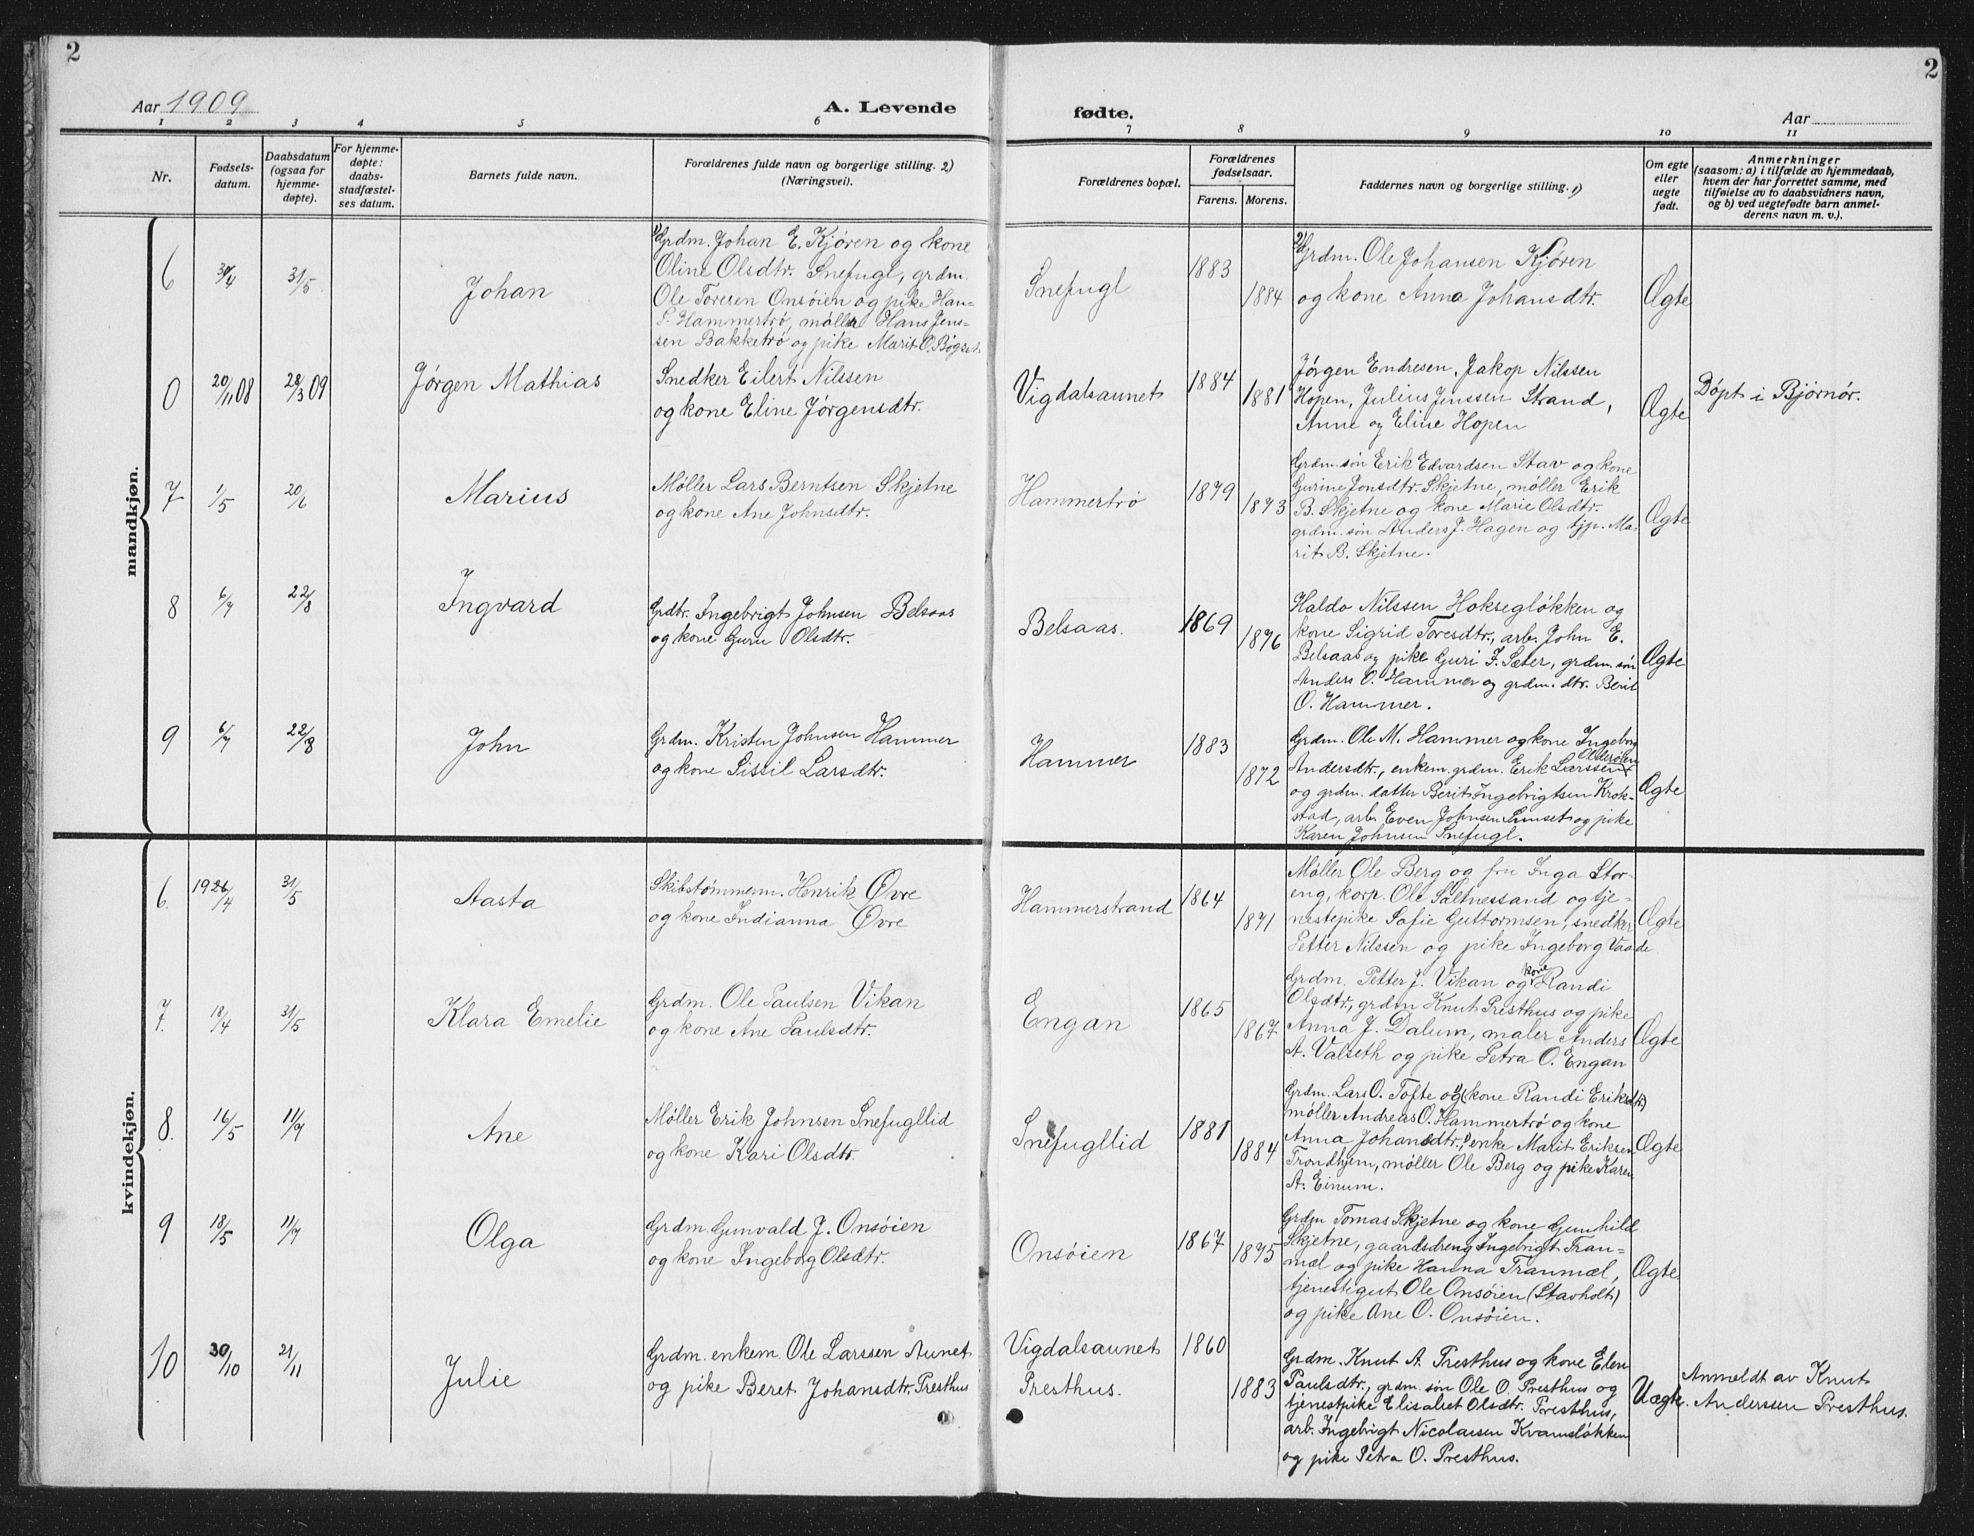 2
2
Aar 1909
A. Levende
fødte.
Aar
1 2 3 4 5 6 7 8 9 10 11
Nr.
Fødsels-
datum.
Daabsdatum
(ogsaa for
hjemme-
døpte).
For hjemme-
døpte:
daabs-
stadfæstel-
ses datum.
Barnets fulde navn.
Forældrenes fulde navn og borgerlige stilling. 2)
(Næringsvei).
Forældrenes bopæl.
Forældrenes
fødselsaar.
Farens. Morens.
Faddernes navn og borgerlige stilling. 1)
Om egte
eller
uegte
født.
Anmerkninger
(saasom: a) i tilfælde av hjemmedaab,
hvem der har forrettet samme, med
tilføielse av to daabsvidners navn,
og b) ved uegtefødte barn anmel-
derens navn m. v.).
mandkjøn.
6
30/4
31/5
Johan
1) Grdm. Johan E. Kjøren og kone
Oline Olsdtr. Snefugl, grdm.
Ole Toresen Onsøien og pike Han-
S. Hammertrø, møller Hans Jens-
sen Bakketrø og pike Marit O. Bøgset
Snefugl
1883
1884
2) Grdm. Ole Johansen Kjøren
og kone Anna Johansdtr.
Ægte
0
20/11 08
28/3 09
Jørgen Mathias
Snedker Eilert Nilssen
og kone Eline Jørgensdtr.
Vigdalsaunet
1884
1881
Jørgen Endresen, Jakop Nilssen
Hopen, Julius Jenssen Strand,
Anne og Eline Hopen
Ægte
Døpt i Bjørnør.
7
1/5
20/6
Marius
Møller Lars Berntsen Skjetne
og kone Ane Johnsdtr.
Hammertrø
1879
1873
Grdm. søn Erik Edvardsen Stav og kone
Gurine Jonsdtr. Skjetne, møller Erik
B. Skjetne og kone Marie Olsdtr.
grdm. søn Anders J. Hagen og tjp. Ma-
rit B. Skjetne.
Ægte
8
6/7
22/8
Ingvard
Grdbr. Ingebrigt Johnsen Belsaas
og kone Guru Olsdtr.
Belsaas.
1869
1876
Haldo Nilssen Hoksegløkken og
kone Sigrid Toresdtr., arb. John E.
Belsaas og pike Guri J. Sæter, grdm. søn
Anders O. Hammer og grdm. dtr. Berit
O. Hammer.
Ægte
9
6/7
22/8
John
Grdm. Kristen Johnsen Hammer
og kone Sissil Larsdtr.
Hammer
1883
1872
Grdm. Ole M. Hammer og kone Ingeborg
Andersdtr., enkem. grdm. Erik Larssen Olderøien
og grdm. datter Berit Ingebrigtsen Krok-
stad, arb. Even Johnsen Lunset og pike
Karen Johnsen Snefugl.
Ægte
kvindekjøn.
6.
1926/4
31/5
Aasta
Skibstømmerm. Henrik Øvre
og kone Indianna Øvre
Hammerstrand
1864
1871
Møller Ole Berg og fru Inga Stor-
eng, korp. Ole Saltnessand og tje-
nestepike Sofie Guttormsen, snedker
Petter Nilssen og pike Ingeborg Vaade
Ægte
7.
18/4
31/5
Klara Emelie
Grdm. Ole Paulsen Vikan
og kone Ane Paulsdtr.
Engan
1865
1867
Grdm. Petter J. Vikan og kone Randi
Olsdtr., grdm Knut Presthus og pike
Anna J. Dalum, maler Anders
A. Valseth og pike Petra O. Engan
Ægte
8.
16/5
11/7
Ane
Møller Erik Johnsen Snefugllid
og kone Kari Olsdtr.
Snefugllid
1881
1884
Grdm. Lars O. Tofte og (kone Randi Eriksdtr)
møller Andreas O. Hammertrø og kone
Anna Johansdtr, enke Marit Eriksen
Trondhjem, møller Ole Berg og pike Karen
A. Einum.
Ægte
9
18/5
11/7
Olga
Grdm. Gunvald J. Onsøien
og kone Ingeborg Olsdtr.
Onsøien
1867
1875
Grdm Tomas Skjetne og kone Gunhild
Skjetne, gaardsdreng Ingebrigt Tran-
mæl og pike Hanna Tranmæl,
tjenestegut Ole Onsøien (Stavholt)
og pike Ane O. Onsøien.
Ægte
10
30/10
21/11
Julie
Grdm. enkem. Ole Larssen Aunet
og pike Beret Johansdtr. Presthus
Vigdalsaunet
Presthus.
1860
1883
Grdm. Knut A. Presthus og kone Elen
Paulsdtr., grdm. søn Ole O. Presthus og
tjenestpike Elisabet Olsdtr. Presthus,
arb. Ingebrigt Nicolaisen Kvamsløkken
og pike Petra O. Presthus.
Uægte.
Anmeldt av Knut
Anderssen Presthus.